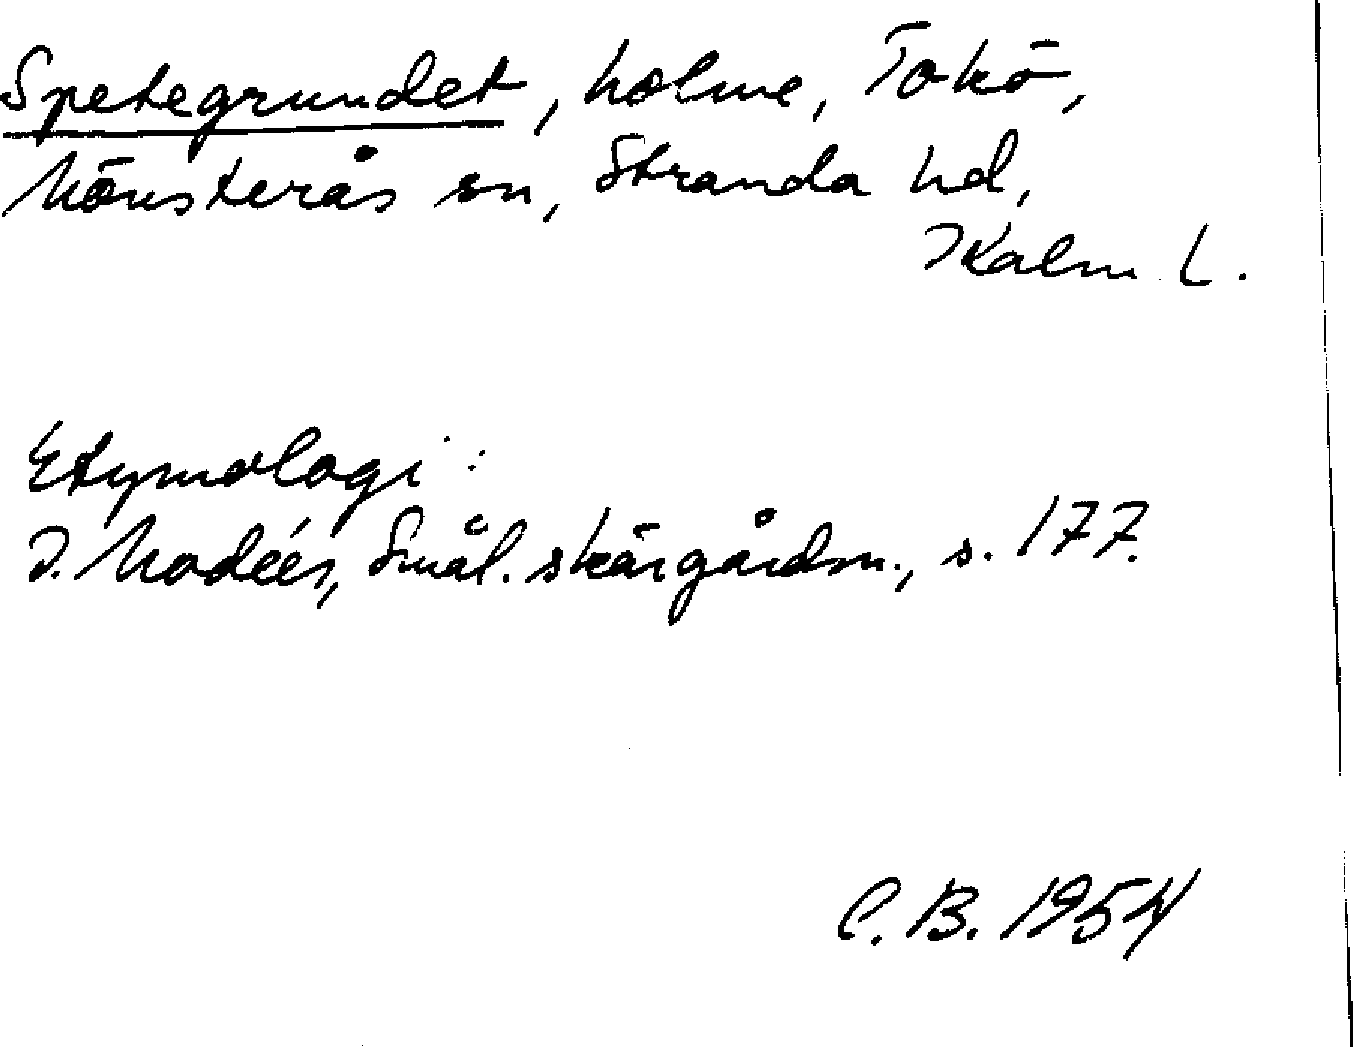 Spetegrundet, holme, Tokö,
Mönsterås sn, Stranda hd,
Kalm. L.
Etymologi:
I. Modéer, Smål. skärgårdsn., s. 177.
C. B. 1954